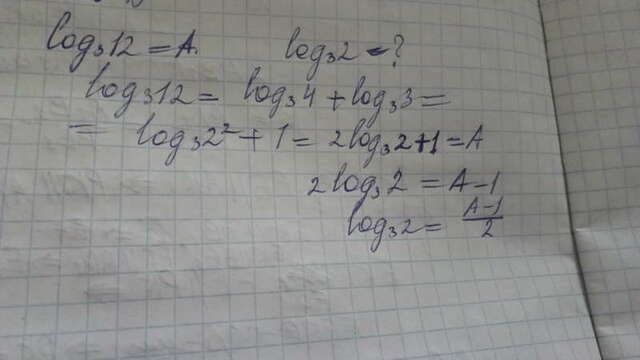 log₃12 = A. log₃2 - ?
log₃12 = log₃4 + log₃3 =
= log₃2² + 1 = 2log₃2 + 1 = A
2log₃2 = A - 1
log₃2 = (A-1)/2